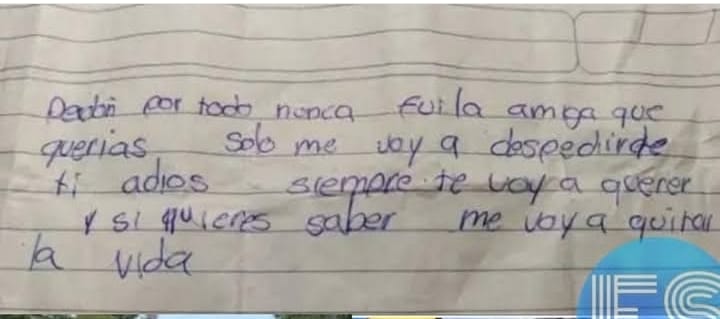 Perdón por todo nunca fui la amiga que
querias solo me voy a despedirde
ti adios siempre te voy a querer
y si quieres saber me voy a quitar
la vida